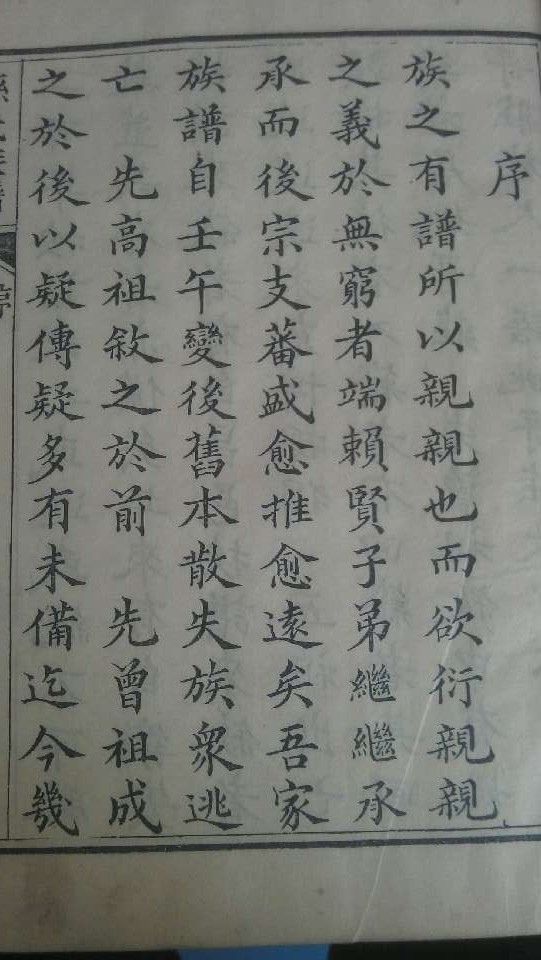 序
族之有譜所以親親也而欲衍親親
之義於無窮者端賴賢子弟繼繼承
承而後宗支蕃盛愈推愈遠矣吾家
族譜自壬午變後舊本散失族衆逃
亡　先高祖敘之於前　先曾祖成
之於後以疑傳疑多有未備迄今幾
序